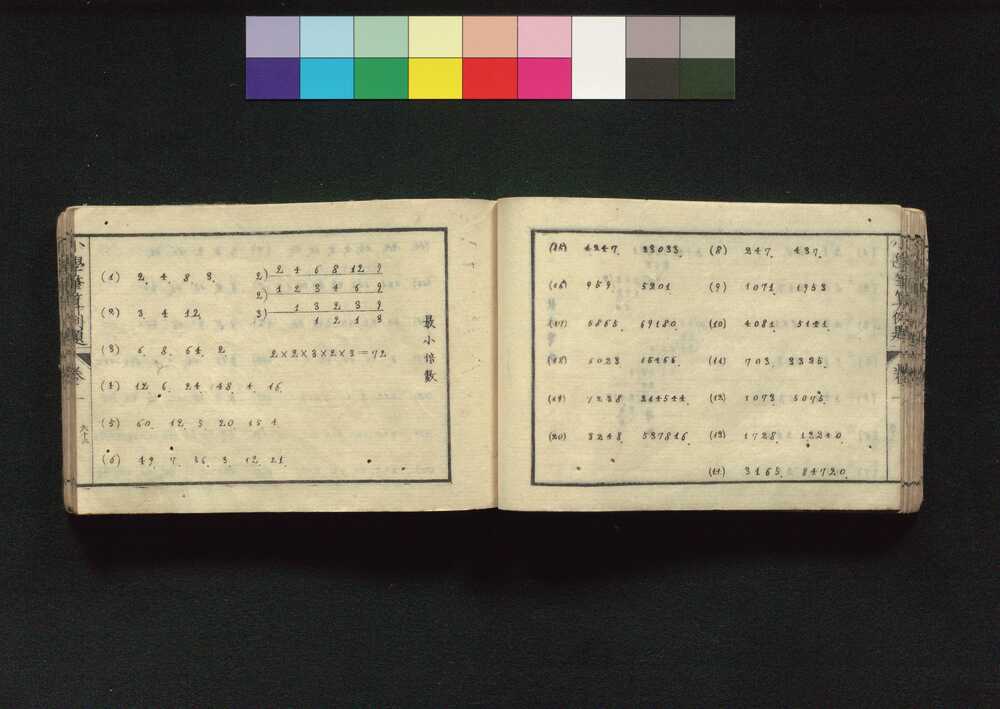 (8) 247. 437.
(9) 1071. 1953
(10) 4081. 5141.
(11) 703. 3395.
(12) 1073. 5075.
(13) 1728. 12240.
(14) 3165. 84720.
(15) 4247. 33033.
(16) 959. 5201
(17) 5865. 69180.
(18) 5023. 15455.
(19) 7238. 264544.
(20) 3248. 537816.
小學筆算例題 卷一
最小倍數
2) 2 4 6 8 12 9
2) 1 2 3 4 6 9
3) 1 3 2 3 9
1 2 1 3
2×2×3×2×3=72
(1) 2. 4. 8. 3.
(2) 3. 4. 12.
(3) 6. 8. 64. 2
(4) 12. 6. 24. 48. 4. 16.
(5) 60. 12. 5. 20. 15 4
(6) 49. 7. 36. 3. 12. 21.
小學筆算例題 卷一
六十三